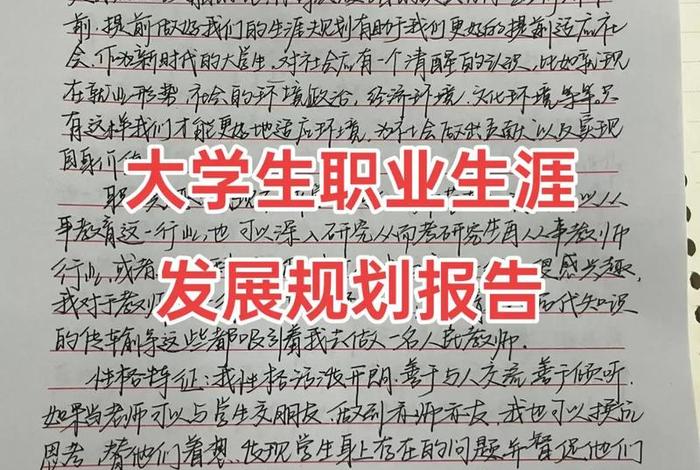 前,提前做好我们的生涯规划有助于我们更好的提前适应社
会.作为新时代的大学生,对社会应有一个清醒的认识,比如就业现
在就业形势,社会的环境政治,经济环境,文化环境等等,只
有这样我们才能更好地适应环境,为社会做出贡献以及实现
自身价值
大学生职业生涯
以从
事教育这一行业,也可以深入研究从而考研究生再从事教师
行业,或者
感兴趣,
发展规划报告
我对于教师
知识
的传输等这些都吸引着我去做一名人民教师.
性格特征:我性格活泼开朗.善于与人交流,善于倾听.
如果当老师可以与学生交朋友,做到亦师亦友,我也可以换位
思考,替他们着想,发现学生身上存在的问题并督促他们